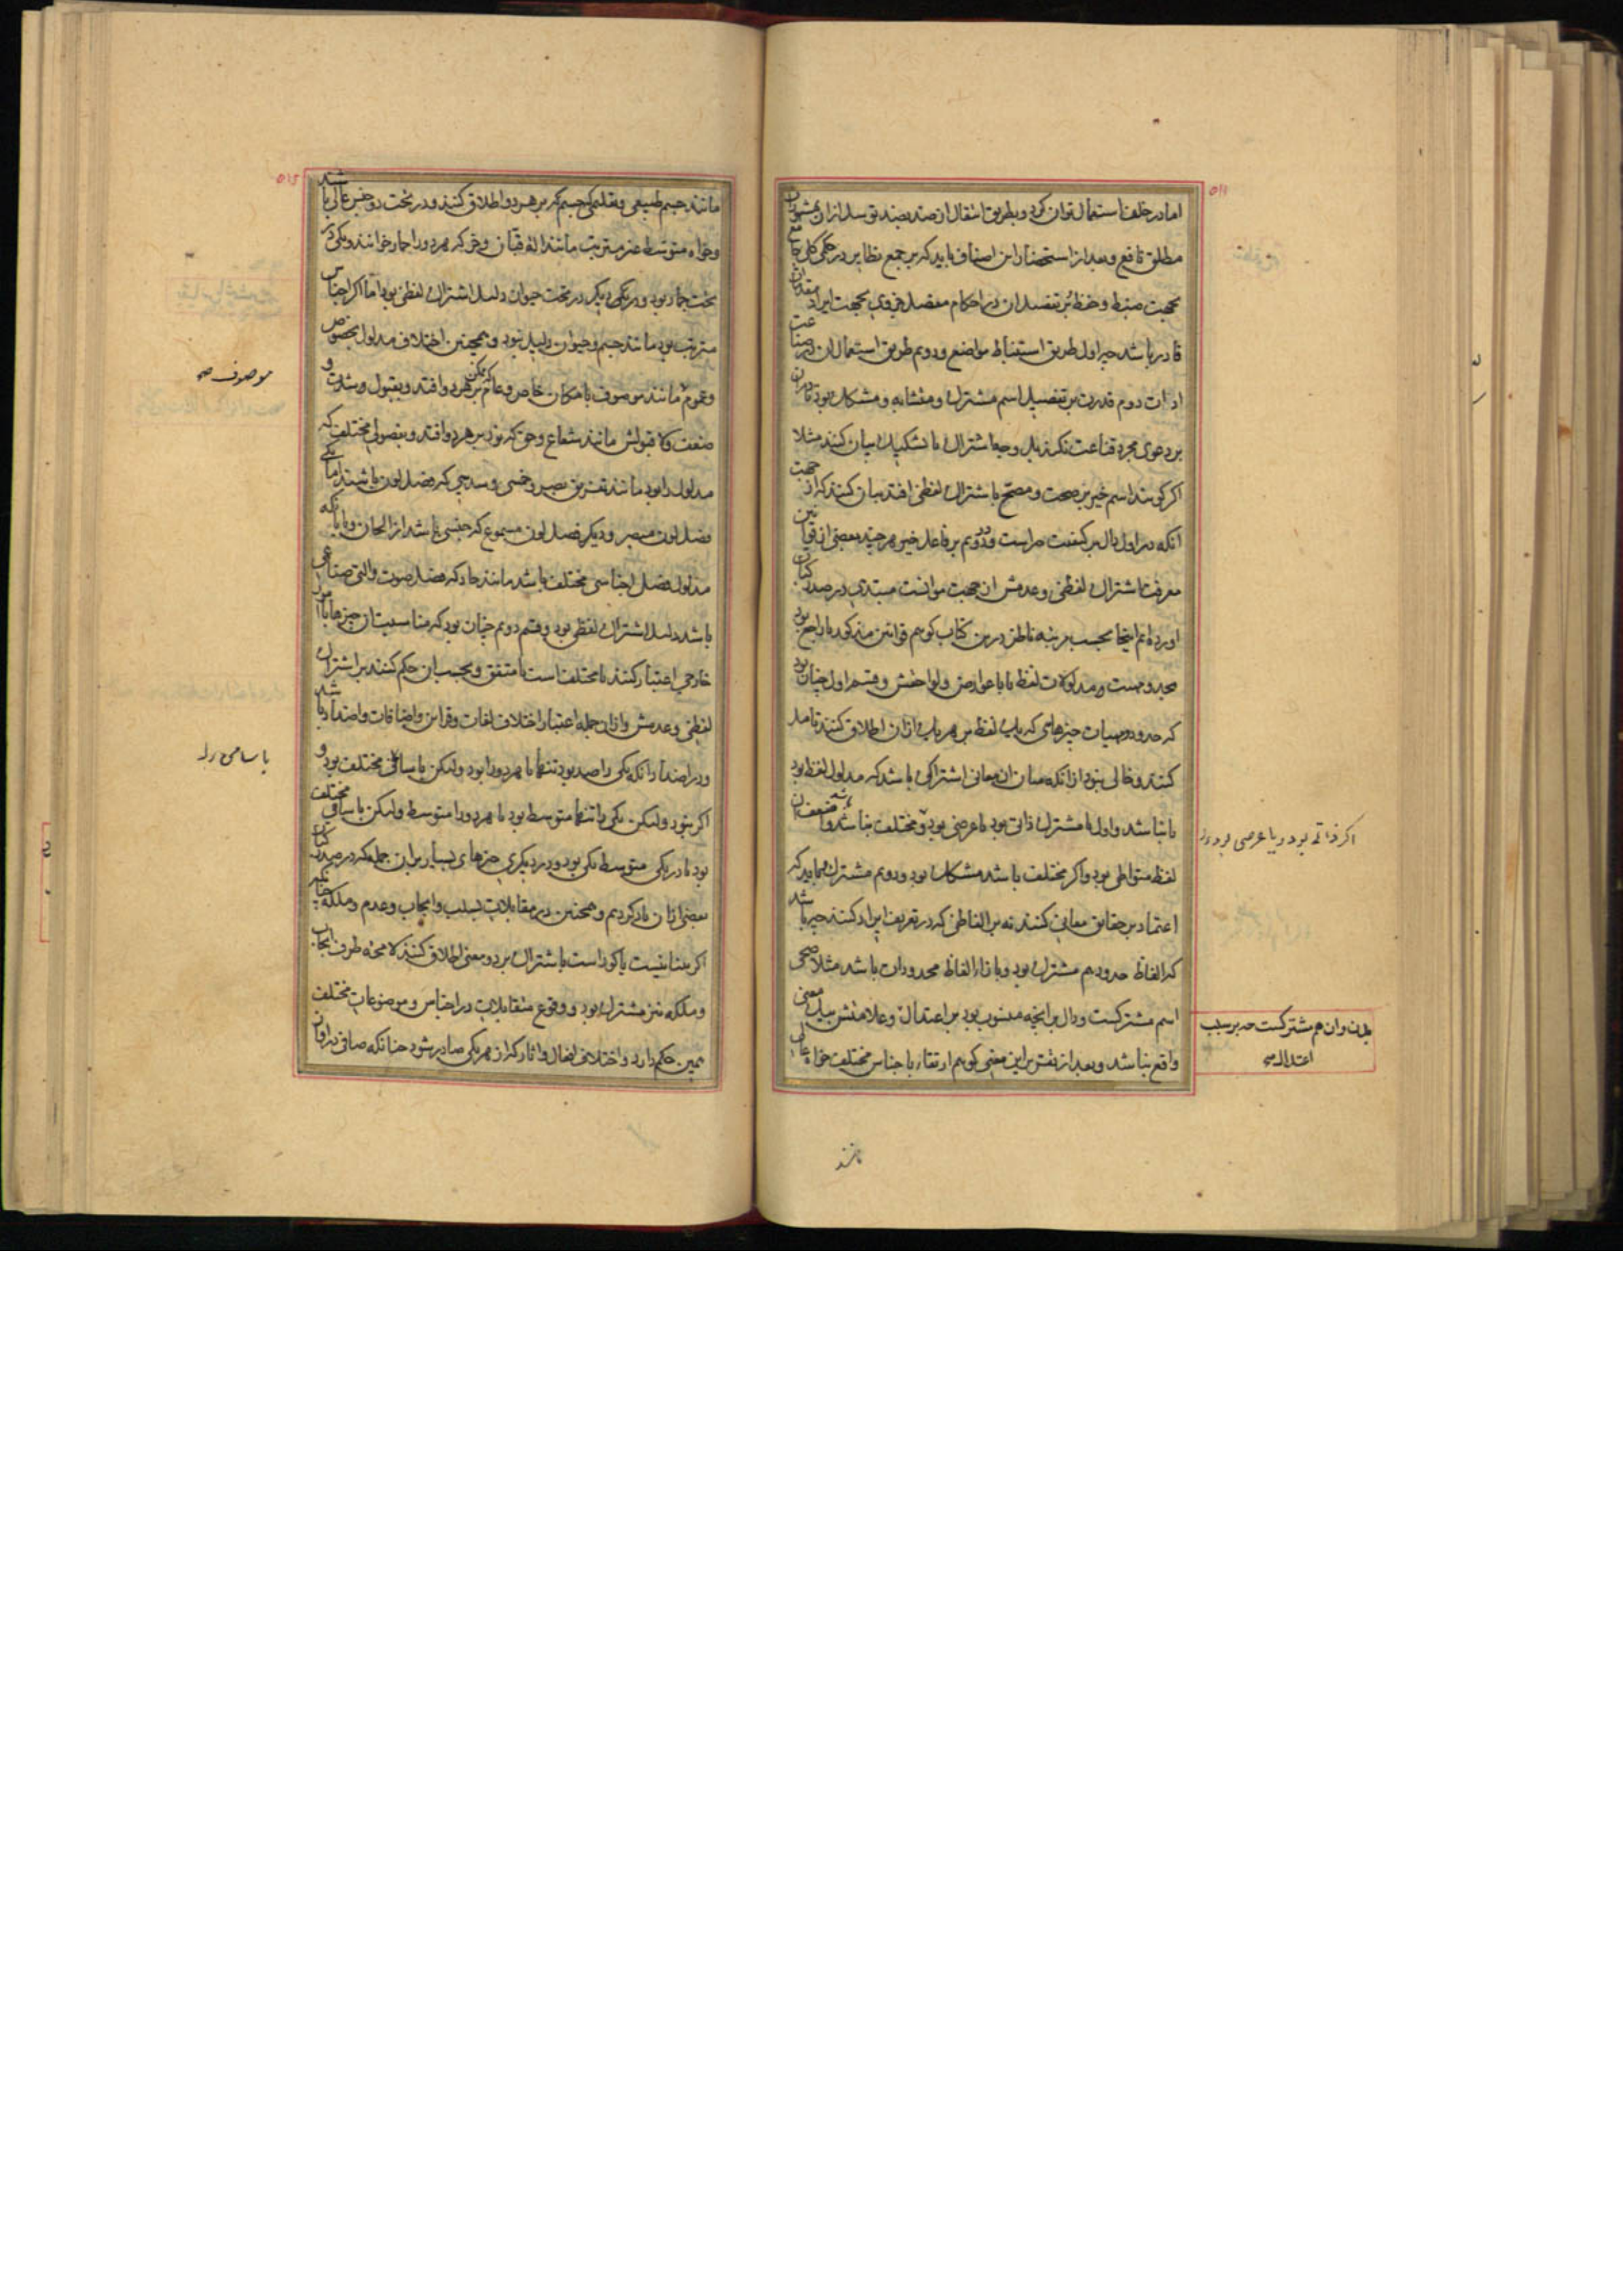 اما در خلف استعمال توان کرد و بطریق انتقال از ضد بضد توسل ازان بمشهوران
مطلق نافع و بعد از استحضار این اصناف باید که بر جمع نظایر در حکمی کلی جامع
بجهت ضبط و حفظ بر تفصیل ان در احکام مفصل جزوی بجهت ایراد مقدمات
قادر باشد چه اول طریق استنباط مواضع و دوم طریق استعمال ان در صناعت
ادات دوم قدرت بر تفصیل اسم مشترک و متشابه و مشکک بود تا دران
بر دعوی مجرد قناعت نکنند بل وجه اشتراک یا تشکیک بیان کنند مثلا
اکر کویند اسم خیر بر صحت و مصحح باشتراک لفظی افتد بیان کنند که از جهت
انکه در اول دال بر کیفیت است و در دویم بر فاعل خیر هر چند بعضی از قوانین
معرفت اشتراک لفظی و عدمش از جهت موانست مبتدی در صدر کتاب
اورده‌ایم اینجا بحسب مرتبه ناظر درین کتاب کوییم قوانین مذکور یا راجع بود
بحدود مدلولات لفظ یا با عوارض و لواحقش و قسم اول چنان بود
که حدود مهیات چیزهای که یک لفظ بر هر یک ازان اطلاق کنند تامل
کنند و خالی نبود از انکه میان ان معانی اشتراکی باشد که مدلول لفظ بود
یا نباشد و اول یا مشترک ذاتی بود یا عرضی بود و مختلف نباشد
لفظ متواطی بود و اکر مختلف باشد مشکک بود و دویم مشترک و باید که
اعتماد بر حقایق معانی کنند نه بر الفاظی که در تعریف ایراد کنند چه باشد
که الفاظ حدود هم مشترک بود و بازاء الفاظ محدودات باشد مثلا صحی
اسم مشترکست و دال بر انچه منسوب بود بر اعتدال و علامتش بیک معنی
واقع نباشد و بعد از تفتیش براین معنی کوییم ارتقاء باجناس مختلف خواه عالی
اکر ذاتی بود و یا عرضی بود
بلدن وان هم مشترکست چه بر سبب
اعتدال صح
مانند
مانند جسم طبیعی و تعلیمی که جسم بر هر دو اطلاق کنند و در تحت دو جنس عالی باشد
وخواه متوسط غیر مترتب مانند الة قبان و خر که هر دو را حمار خوانند و یکی در
تحت جماد بود و یکی دیکر در تحت حیوان دلیل اشتراک لفظی بود اما اکر اجناس
مترتب بود مانند جسم و حیوان دلیل نبود و همچنین اختلاف مدلول بخصوص
و عموم مانند موصوف بامکان خاص و عام که ممکن بر هر دو افتد و بقبول و شدت و
ضعف و لا قبولش مانند شعاع و حق که نور بر هر دو افتد و بفصول مختلف که
مدلول را بود مانند تفریق بصر و خمسی و سدسی که فصل لون باشند اما یکی
فصل لون مبصر و دیکر فصل لون مسموع که جنسی باشد از الحان و یا بانکه
مدلول فصل اجناسی مختلف باشد مانند حاد که فصل صوت و التی صناعی
باشد دلیل اشتراک لفظی بود و قسم دویم چنان بود که مناسبت ان چیزها با امور
خارجی اعتبار کنند تا مختلف است یا متفق و بحسب ان حکم کنند بر اشتراک
لفظی و عدمش وازان جمله اعتبار اختلاف لغات و قراین و اضافات و اضداد باشد
و در اضداد انکه یکی را ضد بود تنها یا هر دو را بود ولیکن باسامی مختلف بود و
اکر نبود ولیکن یکی را تنها متوسط بود یا هر دو را متوسط ولیکن باسامی مختلف
بود یا در یکی متوسط یکی بود و در دیکری چیزهای بسیار برین جمله که در صدر کتاب
بعضی ازان یاد کردیم و همچنین در مقابلات بسلب و ایجاب و عدم و ملکه چنانکه
اکر بینا نیست یا کور است باشتراک بر دو معنی اطلاق کنند لا محاله طرف ایجاب
و ملکه نیز مشترک بود و وقوع متقابلات در اجناس و موضوعات مختلف
همین حکم دارد و اختلاف افعال و اثار که از هر یکی صادر شود چنانکه صافی در اوان
موصوف صح
باسامی